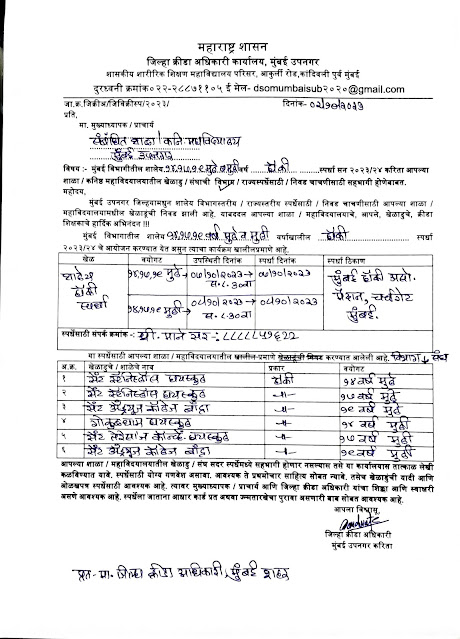 महाराष्ट्र शासन
जिल्हा क्रीडा अधिकारी कार्यालय, मुंबई उपनगर
शासकीय शारीरिक शिक्षण महाविद्यालय परिसर, आकुर्ली रोड,कांदिवली पुर्व मुंबई
दुरध्वनी क्रमांक०२२-२८८७११०५ ई मेल- dsomumbaisub२०२०@gmail.com
जा.क्र.जिक्रीअ/जिविक्रीस्प/२०२३/ दिनांक- ०३/१०/२०२३
प्रति,
मा. मुख्याध्यापक / प्राचार्य
संबंधित शाळा/कनि-महाविद्यालय
मुंबई उपनगर
विषय :- मुंबई विभागीतील शालेय १४,१७,१९ मुले व मुली वर्ष हॉकी स्पर्धा सन २०२३/२४ करिता आपल्या
शाळा / कनिष्ठ महाविद्यालयातील खेळाडु / संघाची विभाग / राज्यस्पर्धेसाठी / निवड चाचणीसाठी सहभागी होणेबाबत.
महोदय,
मुंबई उपनगर जिल्हयामधुन शालेय विभागस्तरीय / राज्यस्तरीय स्पर्धेसाठी / निवड चाचणीसाठी आपल्या शाळा /
महाविद्यालयामधील खेळाडुंची निवड झाली आहे. याबददल आपल्या शाळा / महाविद्यालयाचे, आपले, खेळाडुचे, क्रीडा
शिक्षकाचे हार्दिक अभिनंदन !!!
मुंबई विभागातील शालेय १४,१७,१९ वर्ष मुले व मुली वयोखालील हॉकी स्पर्धा
२०२३/२४ चे आयोजन करण्यात येत असुन त्याचा कार्यक्रम खालीलप्रमाणे आहे.
खेळ वयोगट उपस्थिती दिनांक स्पर्धा दिनांक स्पर्धा ठिकाण
शालेय हॉकी स्पर्धा १४,१७,१९ मुले ०७/१०/२०२३ स.८.३०वा ०७/१०/२०२३ मुंबई हॉकी असो.
१४,१७,१९ मुली ०८/१०/२०२३ स.८.३०वा ०८/१०/२०२३ चर्चगेट मुंबई.
स्पर्धेसाठी संपर्क क्रमांक -: श्री. माने सर -: ८८८८८५७६२२
मा स्पर्धेसाठी आपल्या शाळा / महाविद्यालयातील खालील-प्रमाणे खेळाडुंची निवड करण्यात आलेली आहे. संघ
अ.क्र. खेळाडुचे / शाळेचे नाव प्रकार वयोगट
१ सेंट स्टॅनिस्लॉस हायस्कुल हॉकी १४ वर्ष मुले
२ सेंट स्टॅनिस्लॉस हायस्कुल -॥- १७ वर्ष मुले
३ सेंट अँड्र्युज कॉलेज बांद्रा -॥- १९ वर्ष मुले
४ गोकुळधाम हायस्कुल -॥- १४ वर्ष मुली
५ सेंट हायस्कुल -॥- १७ वर्ष मुली
६ सेंट अँड्र्युज कॉलेज बांद्रा -॥- १९ वर्ष मुली
आपल्या शाळा / महाविद्यालयातील खेळाडु / संघ सदर स्पर्धेमध्ये सहभागी होणार नसल्यास तसे या कार्यालयास तात्काळ लेखी
कळविण्यात यावे. स्पर्धेसाठी योग्य गणवेश असावा. आवश्यक ते प्रथमोचार साहित्य सोबत न्यावे. तसेच खेळाडुंची यादी आणि
ओळखपत्र स्पर्धेसाठी आवश्यक आहे. त्यावर मुख्याध्यापक / प्राचार्य आणि जिल्हा क्रीडा अधिकारी यांचा शिक्का आणि स्वाक्षरी
असणे आवश्यक आहे. स्पर्धेला जाताना आधार कार्ड प्रत अथवा जन्मतारखेचा पुरावा असणारी बाब सोबत आवश्यक आहे.
आपला विश्वासु,
जिल्हा क्रीडा अधिकारी
मुंबई उपनगर करिता
प्रत-मा. जिल्हा क्रीडा अधिकारी, मुंबई शहर